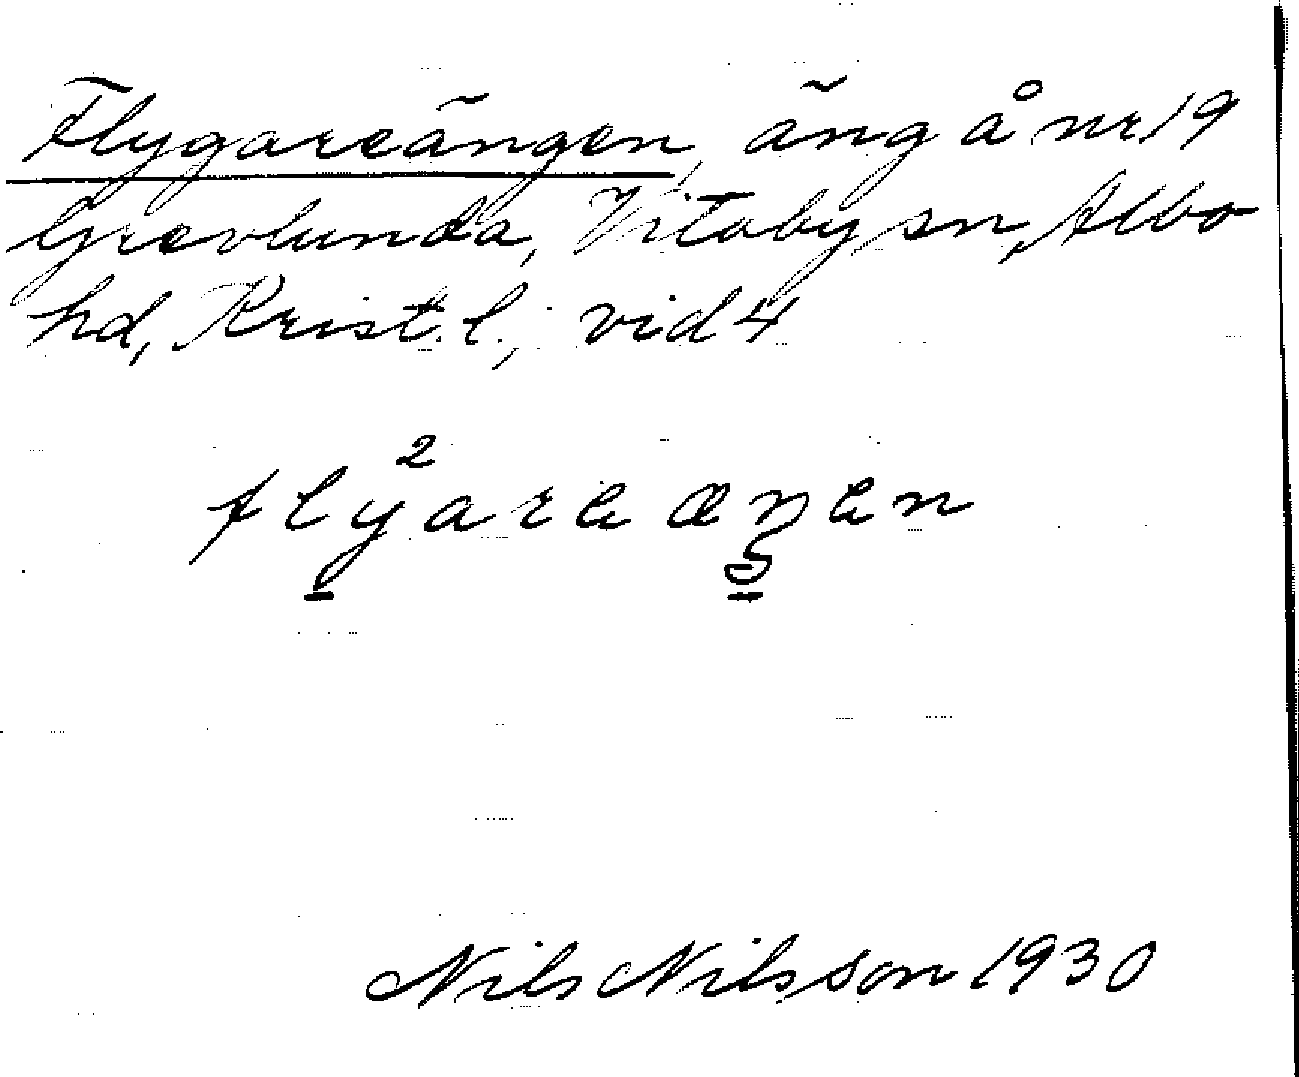 Flygareängen, äng å nr 19
Grevlunda, Vitaby sn, Albo
hd, Krist. l.; vid 4
2
flyareæŋen
Nils Nilsson 1930